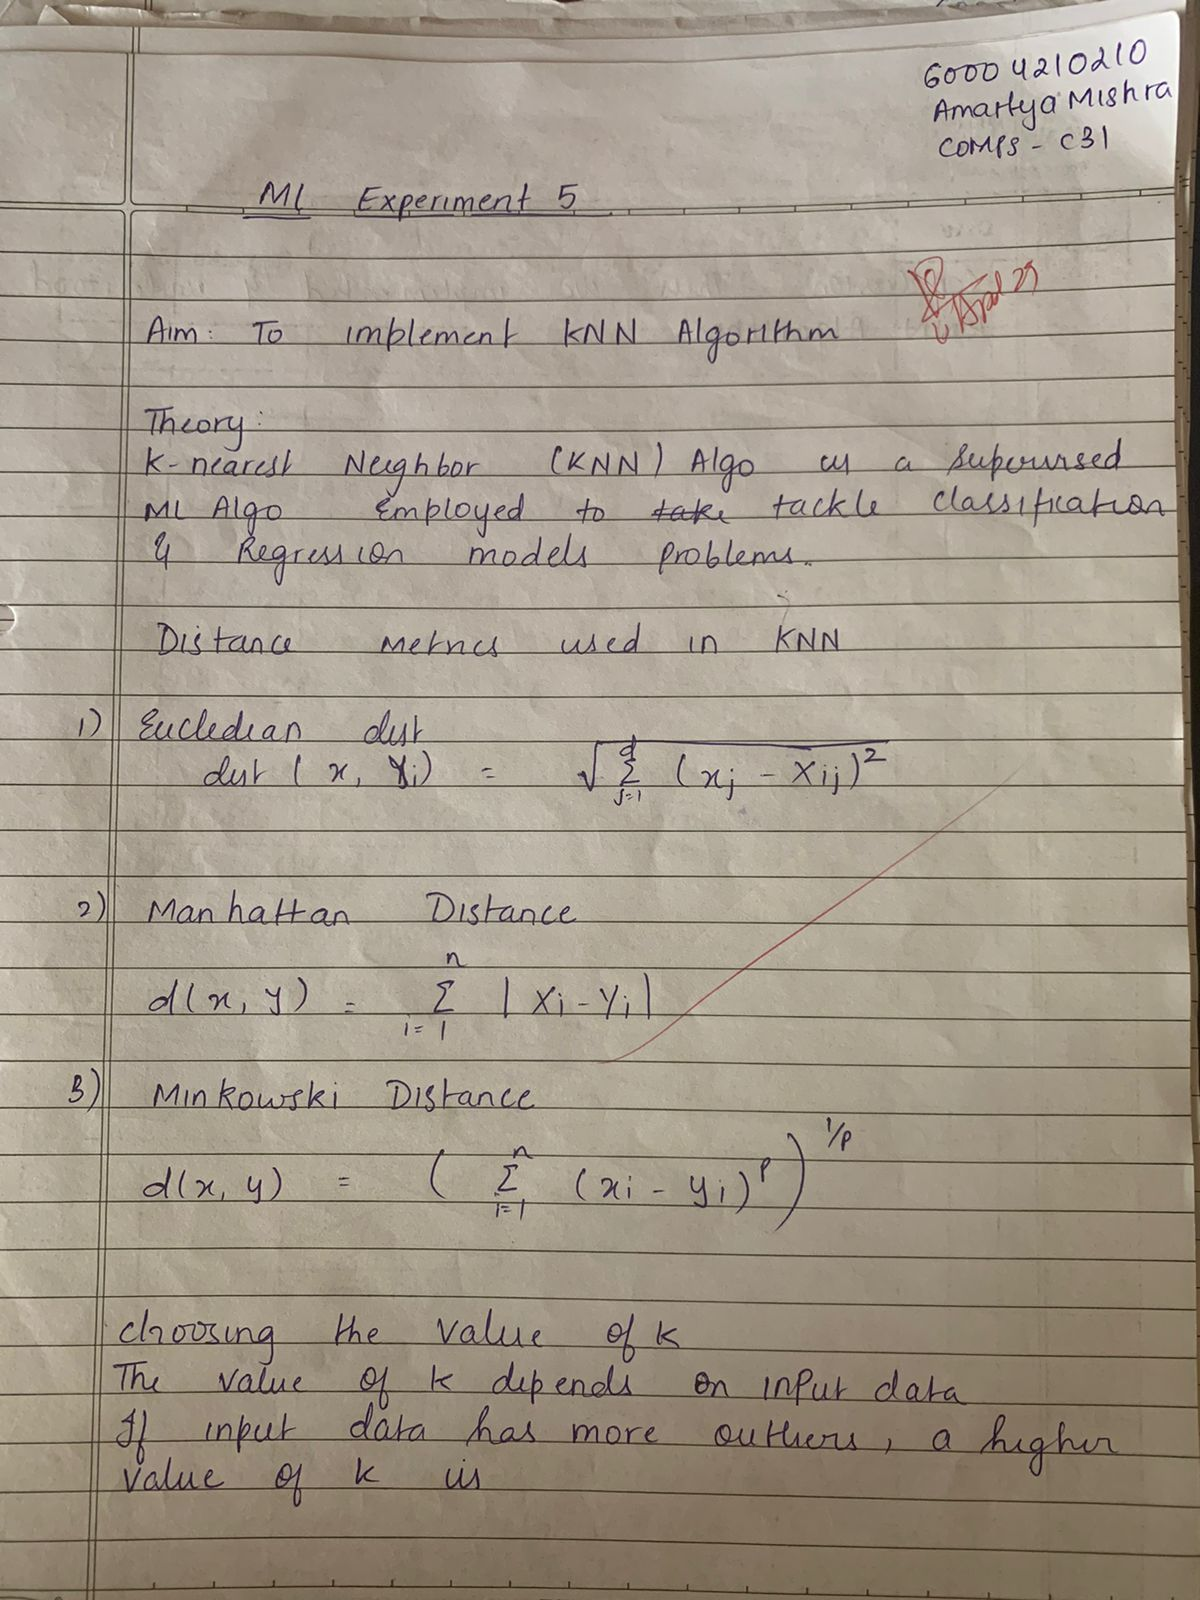 60004210210
Amartya Mishra
COMPS - C31
ML Experiment 5
Aim: To implement KNN Algorithm
Theory:
K-nearest Neighbor (KNN) Algo is a supervised
ML Algo Employed to take tackle classification
& Regression models problems.
Distance metrics used in KNN
1) Eucledian dist
dist (x, Yi) = √ d Σ j=1 (xj - Xij)²
2) Manhattan Distance
d(x, y) = n Σ i=1 | Xi - Yi |
3) Minkowski Distance
d(x, y) = ( n Σ i=1 (xi - yi)^p )^1/p
choosing the value of k
The value of k depends on input data
If input data has more outliers, a higher
value of k is